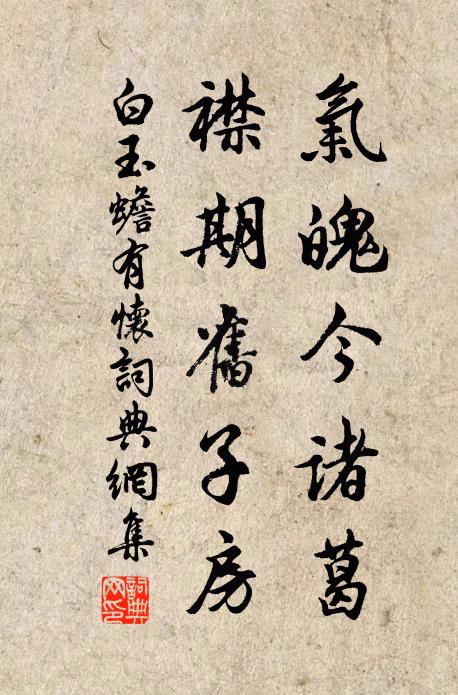 氣魄今諸葛
襟期舊子房
白玉蟾有懷詞典網集
詞典網印